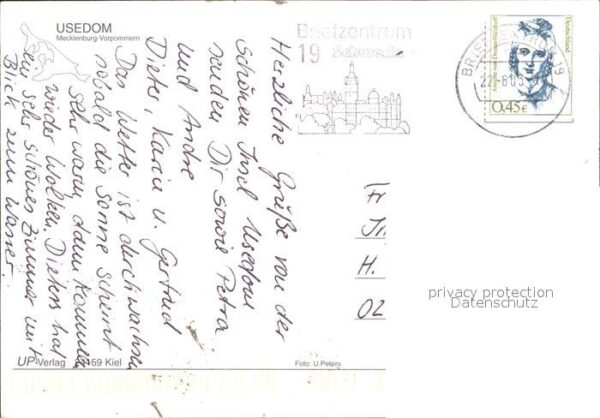 USEDOM
Mecklenburg-Vorpommern
Herzliche Grüße von der
schönen Insel Usedom
senden Dir sowie Petra
und Andre
Dieter, Karin u. Gertrud
Das Wetter ist durchwachsen
sobald die Sonne scheint
sehr warm, dann kommen
wieder Wolken. Dieters hat
ein sehr schönes Zimmer mit
Blick zum Wasser.
UP-Verlag 24159 Kiel
Foto: U.Peters
Briefzentrum
19 Schwerin
BRIEF 19
22.-8.05
Annette von Droste-Hülshoff
Deutschland
0,45€
Fr
H.
02
privacy protection
Datenschutz